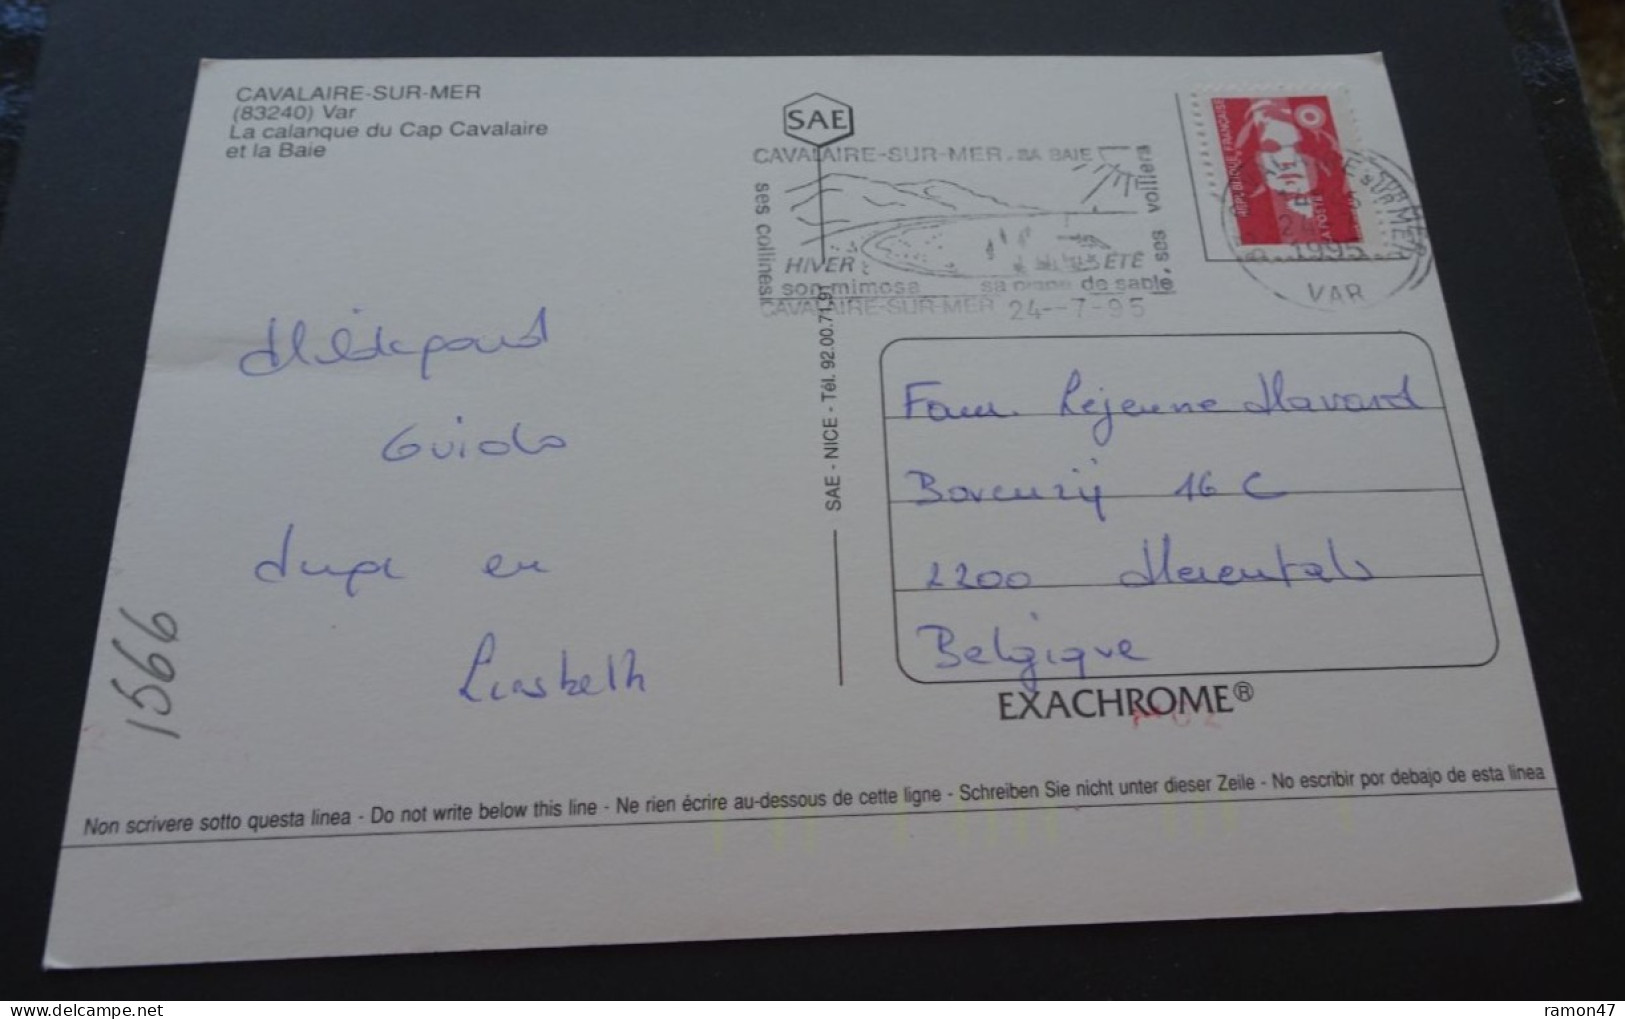 CAVALAIRE-SUR-MER
(83240) Var
La calanque du Cap Cavalaire
et la Baie
SAE
CAVALAIRE-SUR-MER. SA BAIE
ses collines
ses voiliers
HIVER
ÉTÉ
son mimosa
de sable
CAVALAIRE-SUR-MER 24--7-95
RÉPUBLIQUE FRANÇAISE
LA POSTE
1995
VAR
SAE - NICE - Tél. 92.00.71.91
Hildegard
Guido
en
Liesbeth
1566
Fam. Lejeune Havard
16 C
2200 Herentals
Belgique
EXACHROME®
Non scrivere sotto questa linea - Do not write below this line - Ne rien écrire au-dessous de cette ligne - Schreiben Sie nicht unter dieser Zeile - No escribir por debajo de esta linea
ramon47